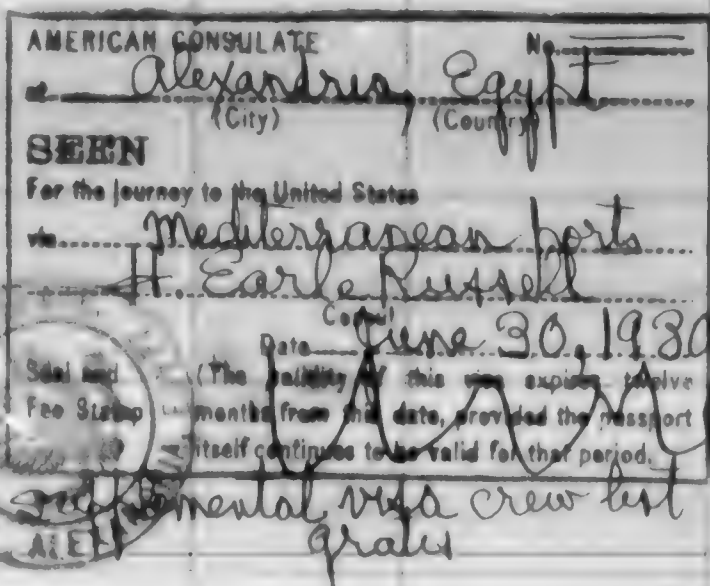 AMERICAN CONSULATE No.
at Alexandria, Egypt
(City) (Country)
SEEN
For the journey to the United States
via Mediterranean ports
H Earle Russell
Consul
Date June 30, 1930
Seal and (The validity of this visa expires twelve
Fee Stamp months from this date, provided the passport
itself continues to be valid for that period.
visa crew list
gratis
ALE